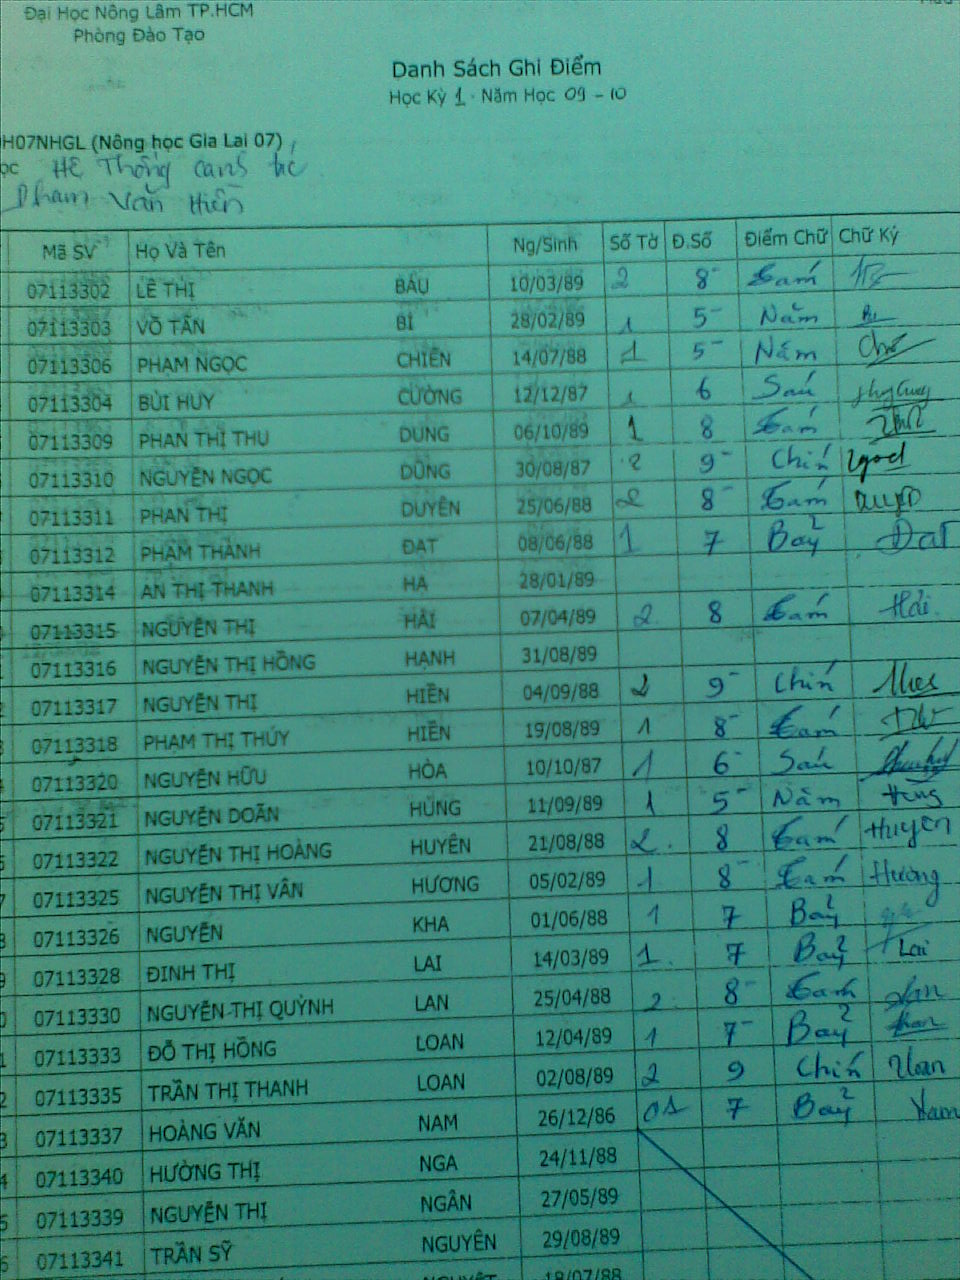 Đại Học Nông Lâm TP.HCM
Phòng Đào Tạo
Danh Sách Ghi Điểm
Học Kỳ 1 - Năm Học 09 - 10
H07NHGL (Nông học Gia Lai 07)
ọc Hệ Thống canh tác
Phạm Văn Hiền
Mã SV Họ Và Tên Ng/Sinh Số Tờ Đ.Số Điểm Chữ Chữ Ký
07113302 LÊ THỊ BÁU 10/03/89 2 8- Tám
07113303 VÕ TẤN BÌ 28/02/89 1 5- Năm Bi
07113306 PHẠM NGỌC CHIẾN 14/07/88 1 5- Năm
07113304 BÙI HUY CƯỜNG 12/12/87 1 6 Sáu
07113309 PHAN THỊ THU DUNG 06/10/89 1 8 Tám
07113310 NGUYỄN NGỌC DŨNG 30/08/87 2 9- Chín
07113311 PHAN THỊ DUYÊN 25/06/88 2 8- Tám Duyên
07113312 PHẠM THÀNH ĐẠT 08/06/88 1 7 Bảy Đạt
07113314 AN THỊ THANH HÀ 28/01/89
07113315 NGUYỄN THỊ HẢI 07/04/89 2 8 Tám Hải
07113316 NGUYỄN THỊ HỒNG HẠNH 31/08/89
07113317 NGUYỄN THỊ HIỀN 04/09/88 2 9- Chín
07113318 PHẠM THỊ THÚY HIỀN 19/08/89 1 8- Tám
07113320 NGUYỄN HỮU HÒA 10/10/87 1 6- Sáu
07113321 NGUYỄN DOÃN HÙNG 11/09/89 1 5- Năm Hùng
07113322 NGUYỄN THỊ HOÀNG HUYÊN 21/08/88 2 8 Tám Huyên
07113325 NGUYỄN THỊ VÂN HƯƠNG 05/02/89 1 8- Tám Hương
07113326 NGUYỄN KHA 01/06/88 1 7 Bảy
07113328 ĐINH THỊ LAI 14/03/89 1 7 Bảy Lai
07113330 NGUYỄN THỊ QUỲNH LAN 25/04/88 2 8- Tám Lan
07113333 ĐỖ THỊ HỒNG LOAN 12/04/89 1 7- Bảy Loan
07113335 TRẦN THỊ THANH LOAN 02/08/89 2 9 Chín Loan
07113337 HOÀNG VĂN NAM 26/12/86 01 7 Bảy Nam
07113340 HƯỜNG THỊ NGA 24/11/88
07113339 NGUYỄN THỊ NGÂN 27/05/89
07113341 TRẦN SỸ NGUYÊN 29/08/89
NGUYỆT 18/07/88